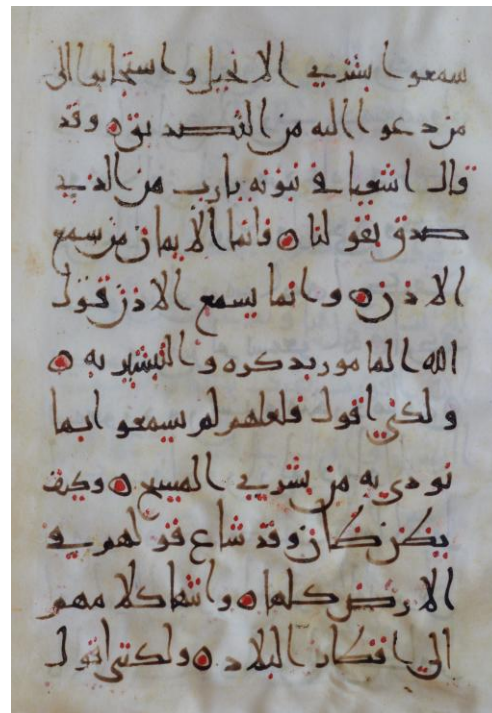 سمعوا بشرى الانجيل واستجابوا الى
من دعوا اليه من التصديق وقد
قال اشعيا في نبوته يا رب من الذي
صدق بقولنا فانما الايمان من سمع
الاذن وانما يسمع الاذن قول
الله المامور بذكره والتبشير به
ولكني اقول فلعلهم لم يسمعوا بما
نودي به من بشرى المسيح وكيف
يكن كان وقد شاع قولهم في
الارض كلها وانتها كلامهم
الى اقطار البلاد ولكنني اقول